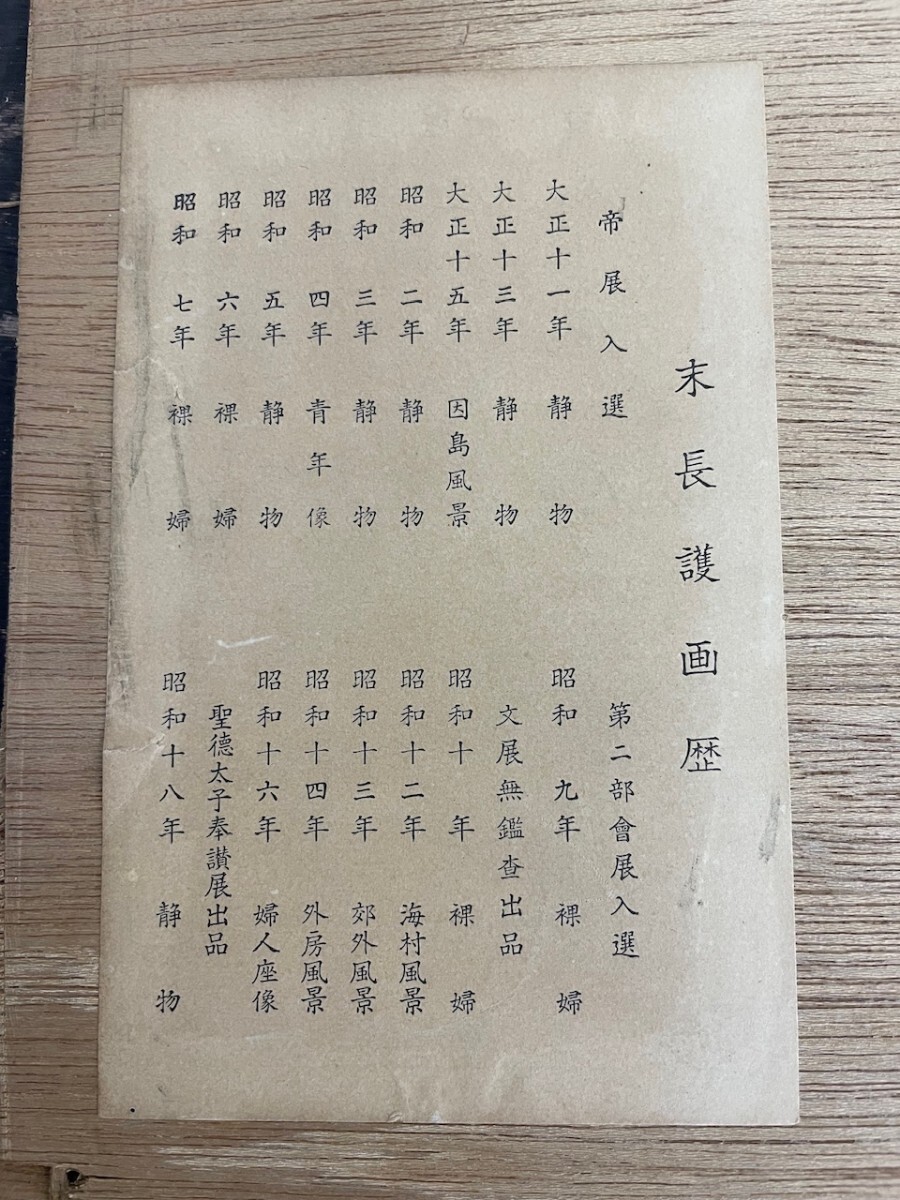 末長護画歴
帝展入選
大正十一年 静物
大正十三年 静物
大正十五年 因島風景
昭和二年 静物
昭和三年 静物
昭和四年 青年像
昭和五年 静物
昭和六年 裸婦
昭和七年 裸婦
第二部會展入選
昭和九年 裸婦
文展無鑑査出品
昭和十年 裸婦
昭和十二年 海村風景
昭和十三年 郊外風景
昭和十四年 外房風景
昭和十六年 婦人座像
聖德太子奉讃展出品
昭和十八年 静物